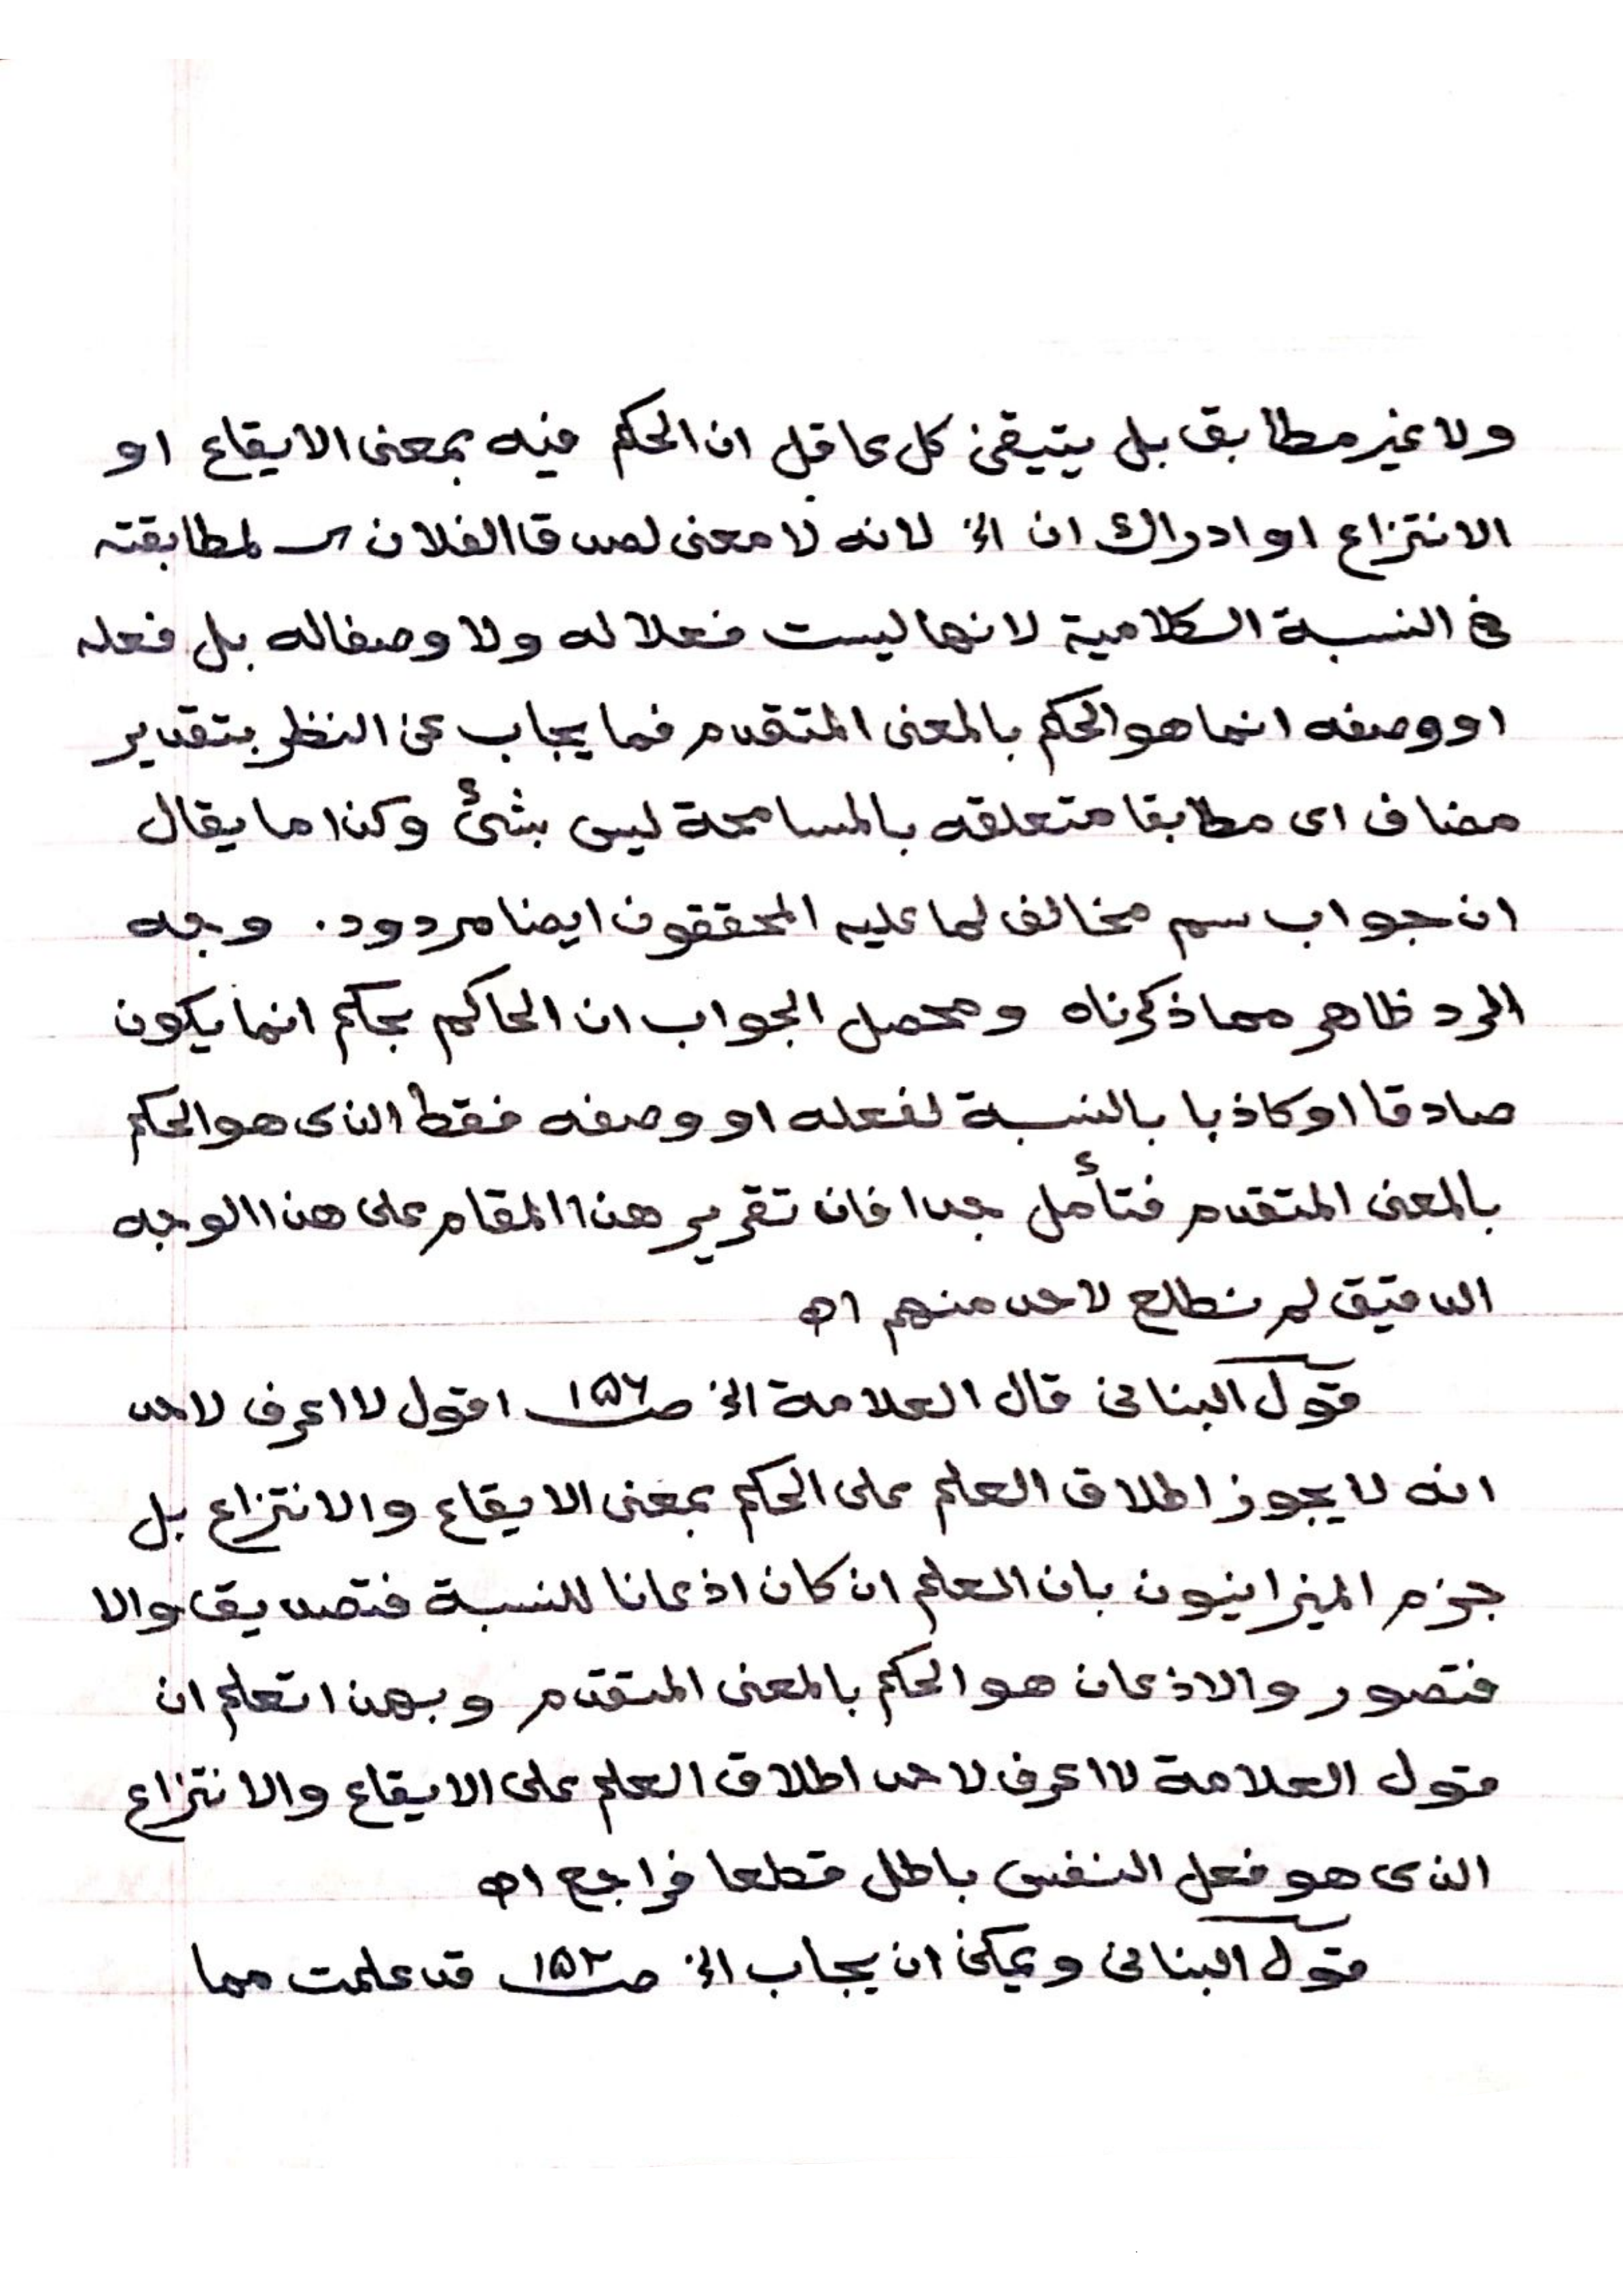 ولا غير مطابق بل يتيقن كل عاقل ان الحكم فيه بمعنى الايقاع او
الانتزاع او ادراك ان الخ لانه لا معنى لصدقا الفلان لمطابقته
فى النسبة الكلامية لانها ليست فعلا له ولا وصفا له بل فعله
او وصفه انما هو الحكم بالمعنى المتقدم فما يجاب عن النظر بتقدير
مضاف اى مطابقا متعلقه بالمسامحة ليس بشئ وكذا ما يقال
ان جواب سم مخالف لما عليه المحققون ايضا مردود. وجه
الرد ظاهر مما ذكرناه ومحصل الجواب ان الحاكم بحكم انما يكون
صادقا او كاذبا بالنسبة لفعله او وصفه فقط الذى هو الحكم
بالمعنى المتقدم فتأمل جدا فان تقرير هذا المقام على هذا الوجه
الدقيق لم نطلع لاحد منهم اھ
قول البنانى قال العلامة الخ صـ ١٥٦ اقول لا اعرف لاحد
انه لا يجوز اطلاق العلم على الحكم بمعنى الايقاع والانتزاع بل
جزم الميزانيون بان العلم ان كان اذعانا للنسبة فتصديق والا
فتصور والاذعان هو الحكم بالمعنى المتقدم وبهذا تعلم ان
قول العلامة لا اعرف لاحد اطلاق العلم على الايقاع والانتزاع
الذى هو فعل النفس باطل قطعا فراجع اھ
قول البنانى ويمكن ان يجاب الخ صـ ١٥٢ قد علمت مما